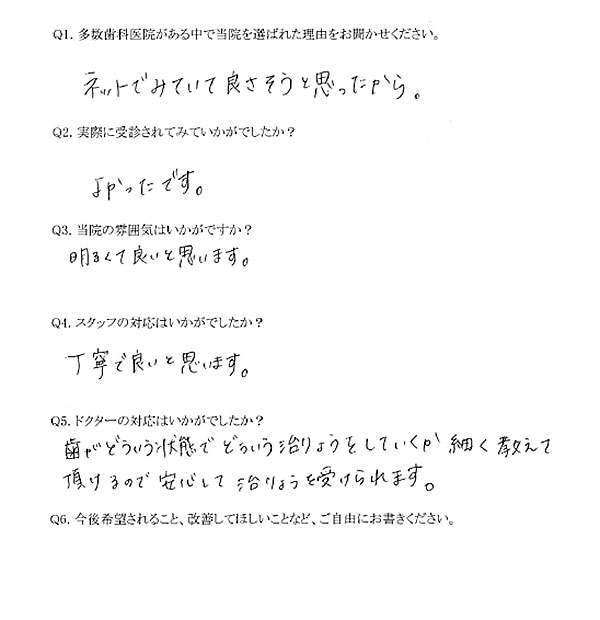 Q1. 多数歯科医院がある中で当院を選ばれた理由をお聞かせください。
ネットでみていて良さそうと思ったから。
Q2. 実際に受診されてみていかがでしたか？
よかったです。
Q3. 当院の雰囲気はいかがですか？
明るくて良いと思います。
Q4. スタッフの対応はいかがでしたか？
丁寧で良いと思います。
Q5. ドクターの対応はいかがでしたか？
歯がどういう状態でどういう治りょうをしていくか細く教えて
頂けるので安心して治りょうを受けられます。
Q6. 今後希望されること、改善してほしいことなど、ご自由にお書きください。